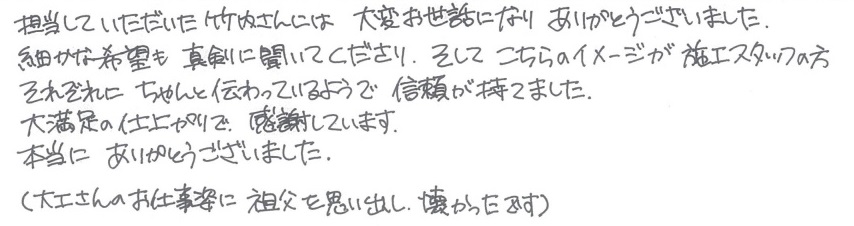 担当していただいた竹内さんには 大変お世話になり ありがとうございました.
細かな希望も 真剣に聞いてくださり. そして こちらのイメージが 施工スタッフの方
それぞれに ちゃんと伝わっているようで 信頼が持てました.
大満足の仕上がりで. 感謝しています.
本当に ありがとうございました.
(大工さんのお仕事姿に 祖父を思い出し. 懐かったです)